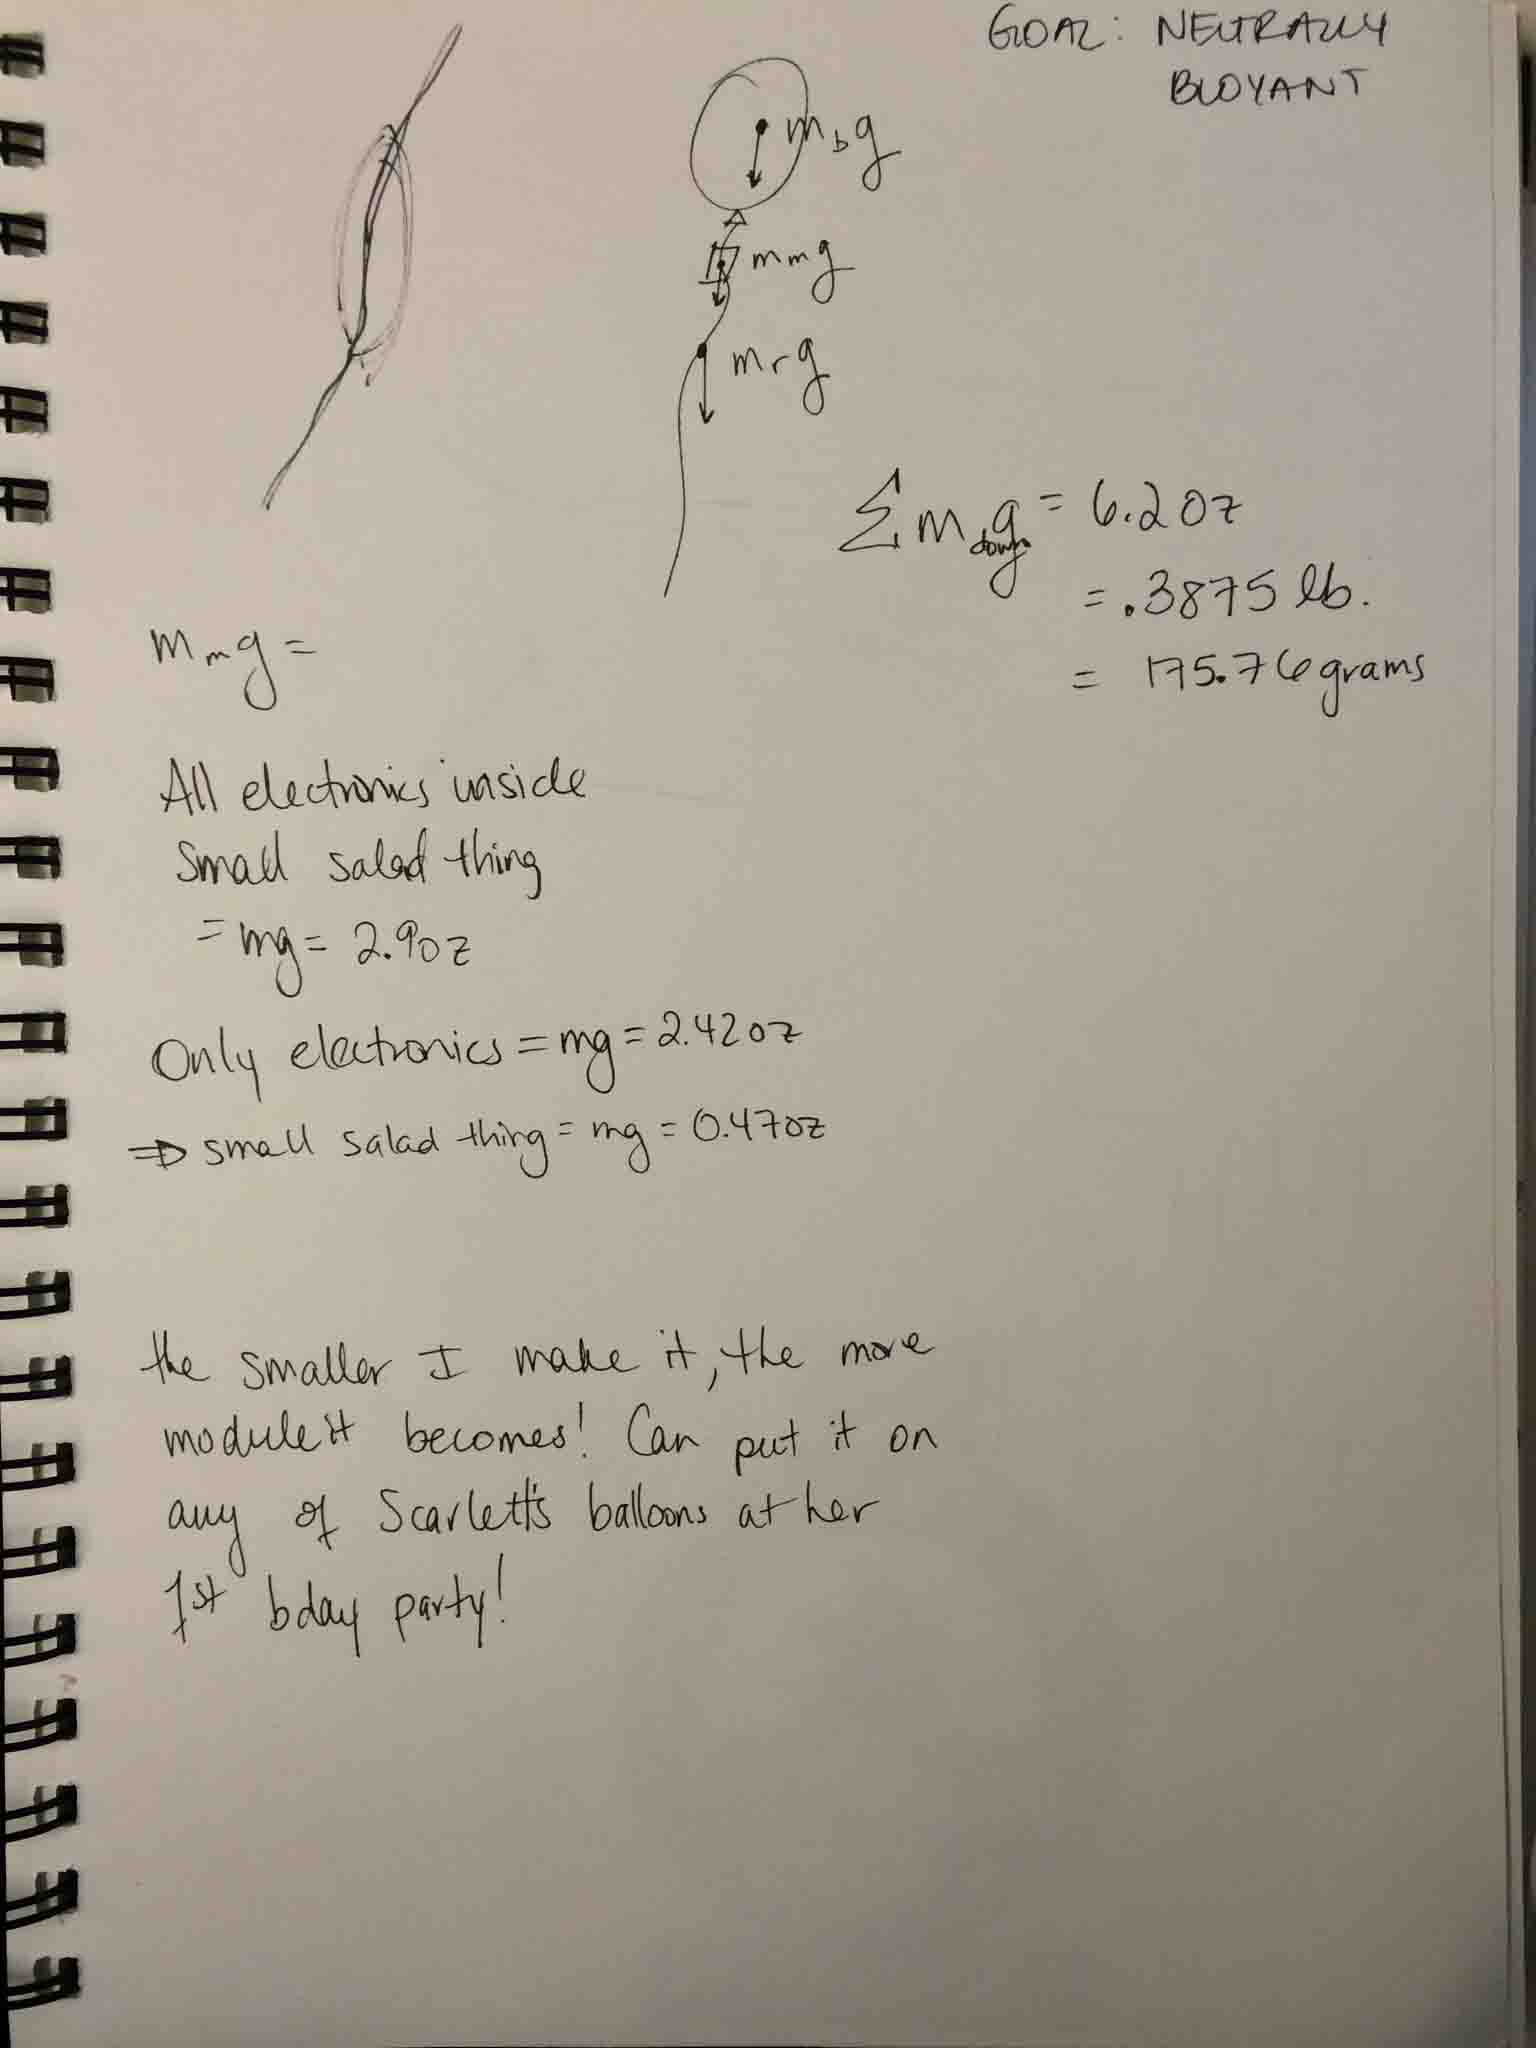 GOAL: NEUTRALLY
BUOYANT
m_b g
m_m g
m_r g
Σ m_down g = 6.2 oz
= .3875 lb.
= 175.76 grams
m_m g =
All electronics inside
small salad thing
= mg = 2.9 oz
Only electronics = mg = 2.42 oz
⇒ small salad thing = mg = 0.47 oz
the smaller I make it, the more
module it becomes! Can put it on
any of Scarlett's balloons at her
1st bday party!